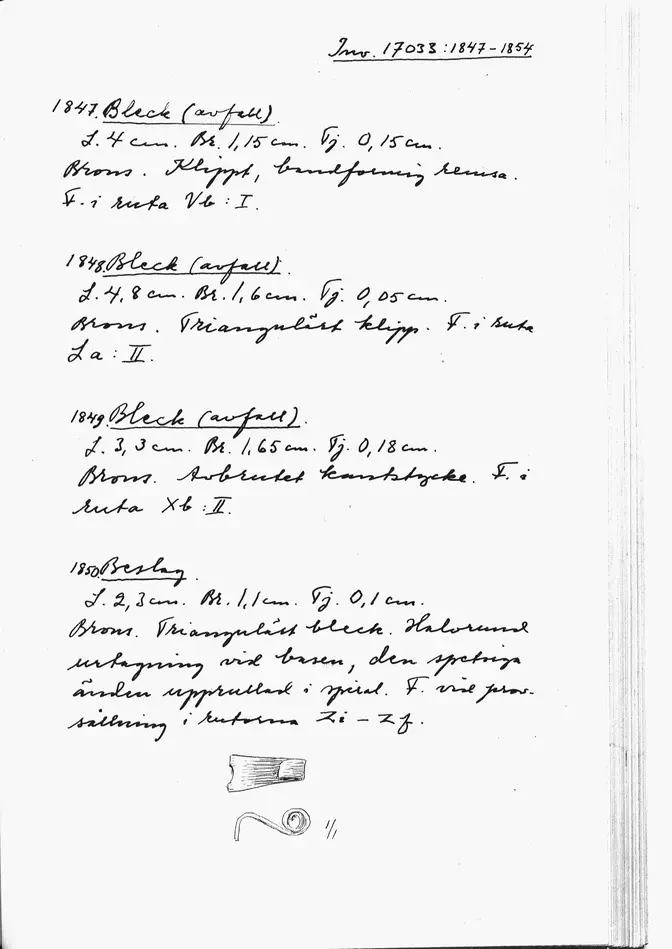 Inv. 17033:1847-1854
1847. Bleck (avfall).
L. 4 cm. Br. 1,15 cm. Tj. 0,15 cm.
Brons. Klippt, bandformig remsa.
F. i ruta Vb : I.
1848. Bleck (avfall).
L. 4,8 cm. Br. 1,6 cm. Tj. 0,05 cm.
Brons. Triangulärt klipp. F. i ruta
La : II.
1849. Bleck (avfall).
L. 3,3 cm. Br. 1,65 cm. Tj. 0,18 cm.
Brons. Avbrutet kantstycke. F. i
ruta Xb : II.
1850. Beslag.
L. 2,3 cm. Br. 1,1 cm. Tj. 0,1 cm.
Brons. Triangulärt bleck. Halvrund
urtagning vid basen, den spetsiga
änden upprullad i spiral. F. vid prov-
sållning i rutorna Zi - Zf.
1/1